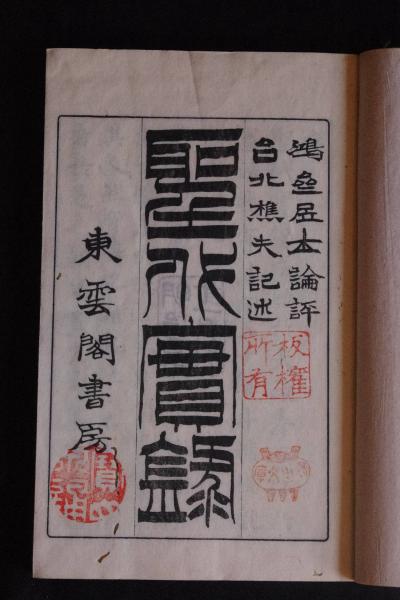 鴻居士論評
台北樵夫記述
板權
所有
聖代實錄
東雲閣書房